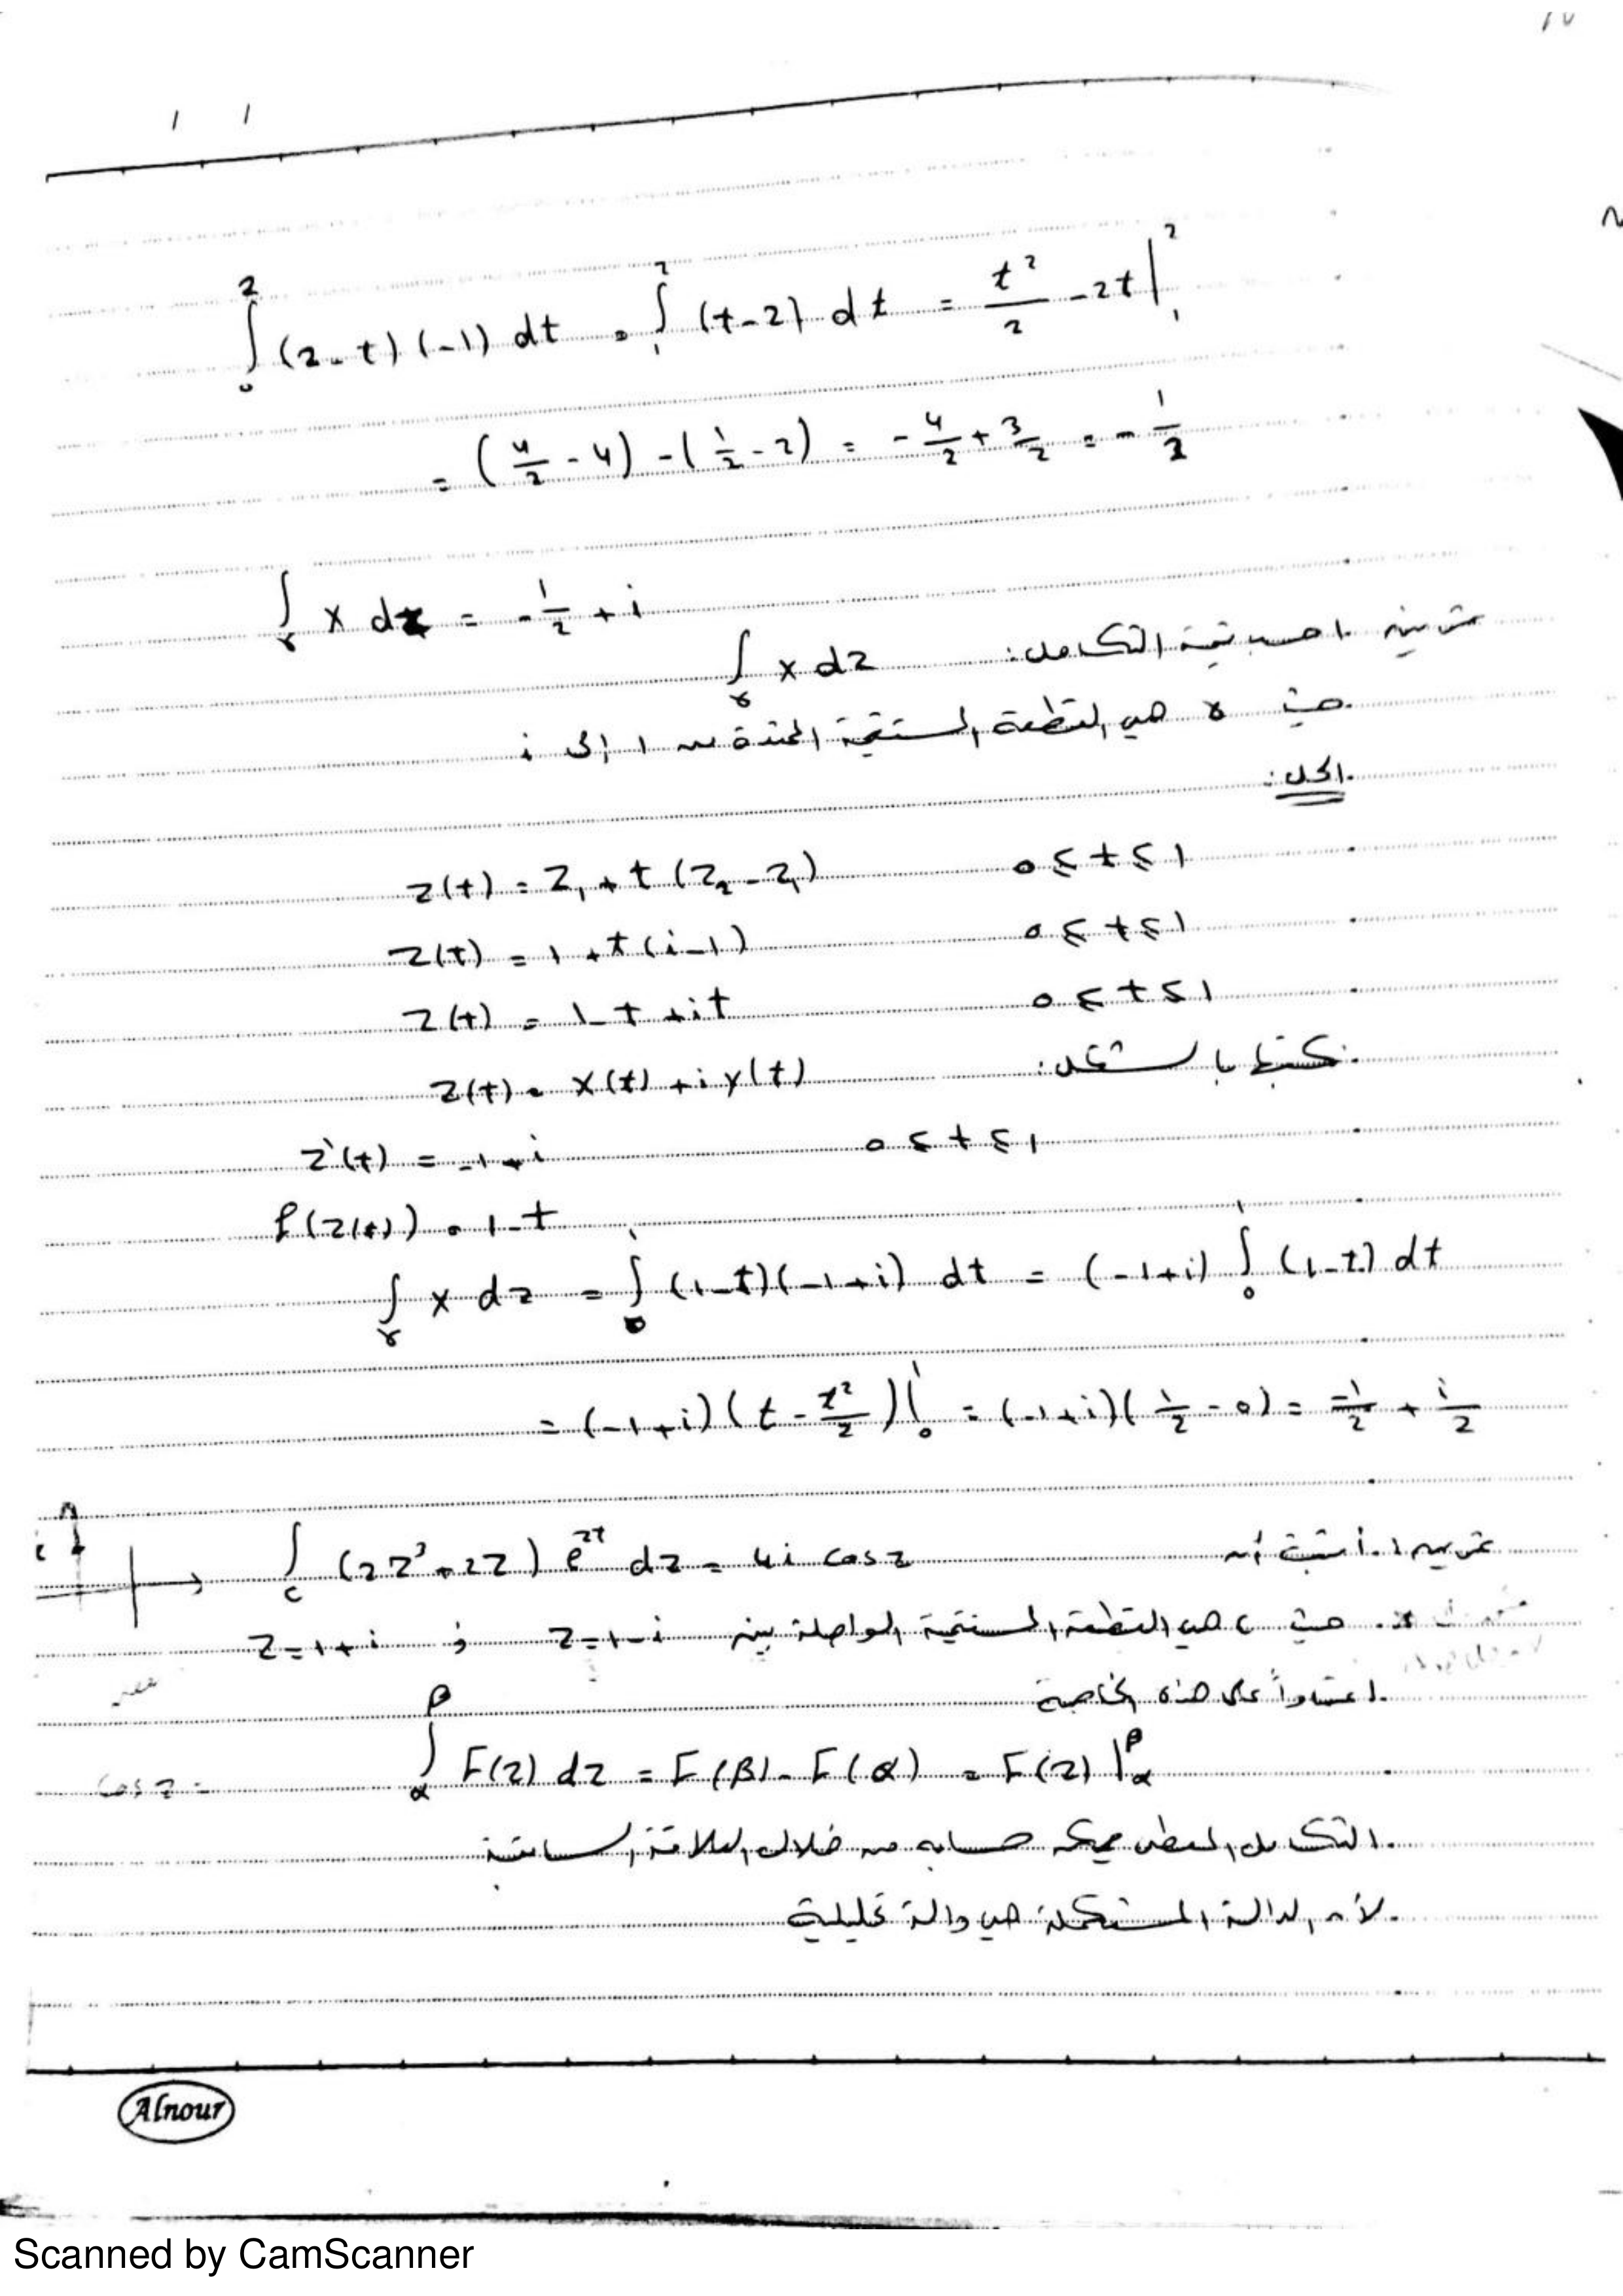 ١٧
/ /
∫₀² (2-t)(-1) dt = ∫₁² (t-2) dt = t²/2 - 2t |₁²
= (4/2 - 4) - (1/2 - 2) = -4/2 + 3/2 = -1/2
∫_γ x dz = -1/2 + i
تمرين احسب قيمة التكامل: ∫_γ x dz
حيث γ هي القطعة المستقيمة الممتدة من 1 إلى i
الحل:
z(t) = z₁ + t(z₂ - z₁) 0 ≤ t ≤ 1
z(t) = 1 + t(i-1) 0 ≤ t ≤ 1
z(t) = 1-t+it 0 ≤ t ≤ 1
نكتبها بالشكل: z(t) = x(t) + iy(t)
z'(t) = -1+i 0 ≤ t ≤ 1
f(z(t)) = 1-t
∫_γ x dz = ∫₀¹ (1-t)(-1+i) dt = (-1+i) ∫₀¹ (1-t) dt
= (-1+i)(t - t²/2)|₀¹ = (-1+i)(1/2 - 0) = -1/2 + i/2
تمرين: أثبت أن ∫_c (2z³+2z) dz = 4i cos z
حيث c هي القطعة المستقيمة الواصلة بين z=1-i و z=1+i
اعتماداً على هذه الخاصة
∫_α^β F(z) dz = F(β) - F(α) = F(z)|_α^β
cos z =
التكامل المعطى يمكن حسابه من خلال العلاقة السابقة
لأن الدالة المستكملة هي دالة تحليلية
Alnour
Scanned by CamScanner